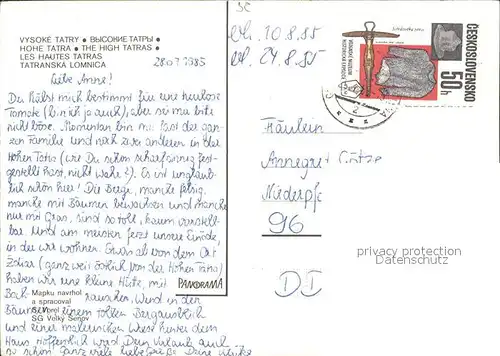 VYSOKÉ TATRY • ВЫСОКИЕ ТАТРЫ •
HOHE TATRA • THE HIGH TATRAS •
LES HAUTES TATRAS
TATRANSKÁ LOMNICA
28.07.1985
10.8.85
24.8.85
ČESKOSLOVENSKO
50h
Liebe Anne!
Du hältst mich bestimmt für eine treulose
Tomate (bin ich ja auch), aber sei mir bitte
nicht böse. Momentan bin ich fast der gan-
zen Familie und noch zwei anderen in der
Hohen Tatra (wie Du schon scharfsinnig fest-
gestellt hast, nicht wahr?). Es ist unglaub-
lich schön hier! Die Berge, manche felsig,
manche mit Bäumen bewachsen und manche
nur mit Gras, sind so toll, kaum vorstell-
bar. Und am meisten fetzt unsere Einöde,
in der wir wohnen. Etwas ab von dem Ort
Ždiar (ganz weit östlich von der Hohen Tatra)
haben wir eine kleine Hütte, mit
Bach rauschen, Wind in den
Bäumen, einem tollen Bergausblick
und einer malerischen Wiese hinter dem
Haus. Hoffentlich wird Dein Urlaub auch
so schön. Ganz viele liebe Grüße Deine
PANORAMA
Mapku navrhol
a spracoval
SG Velký Šenov
Fräulein
Annegret Götze
96
DDR
privacy protection
www.oldthing.de